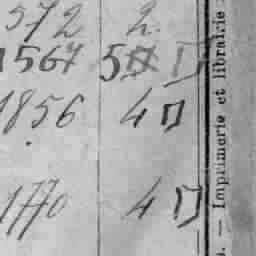 572 2
1567 5
1856 4
1770 4
— Imprimerie et librairie